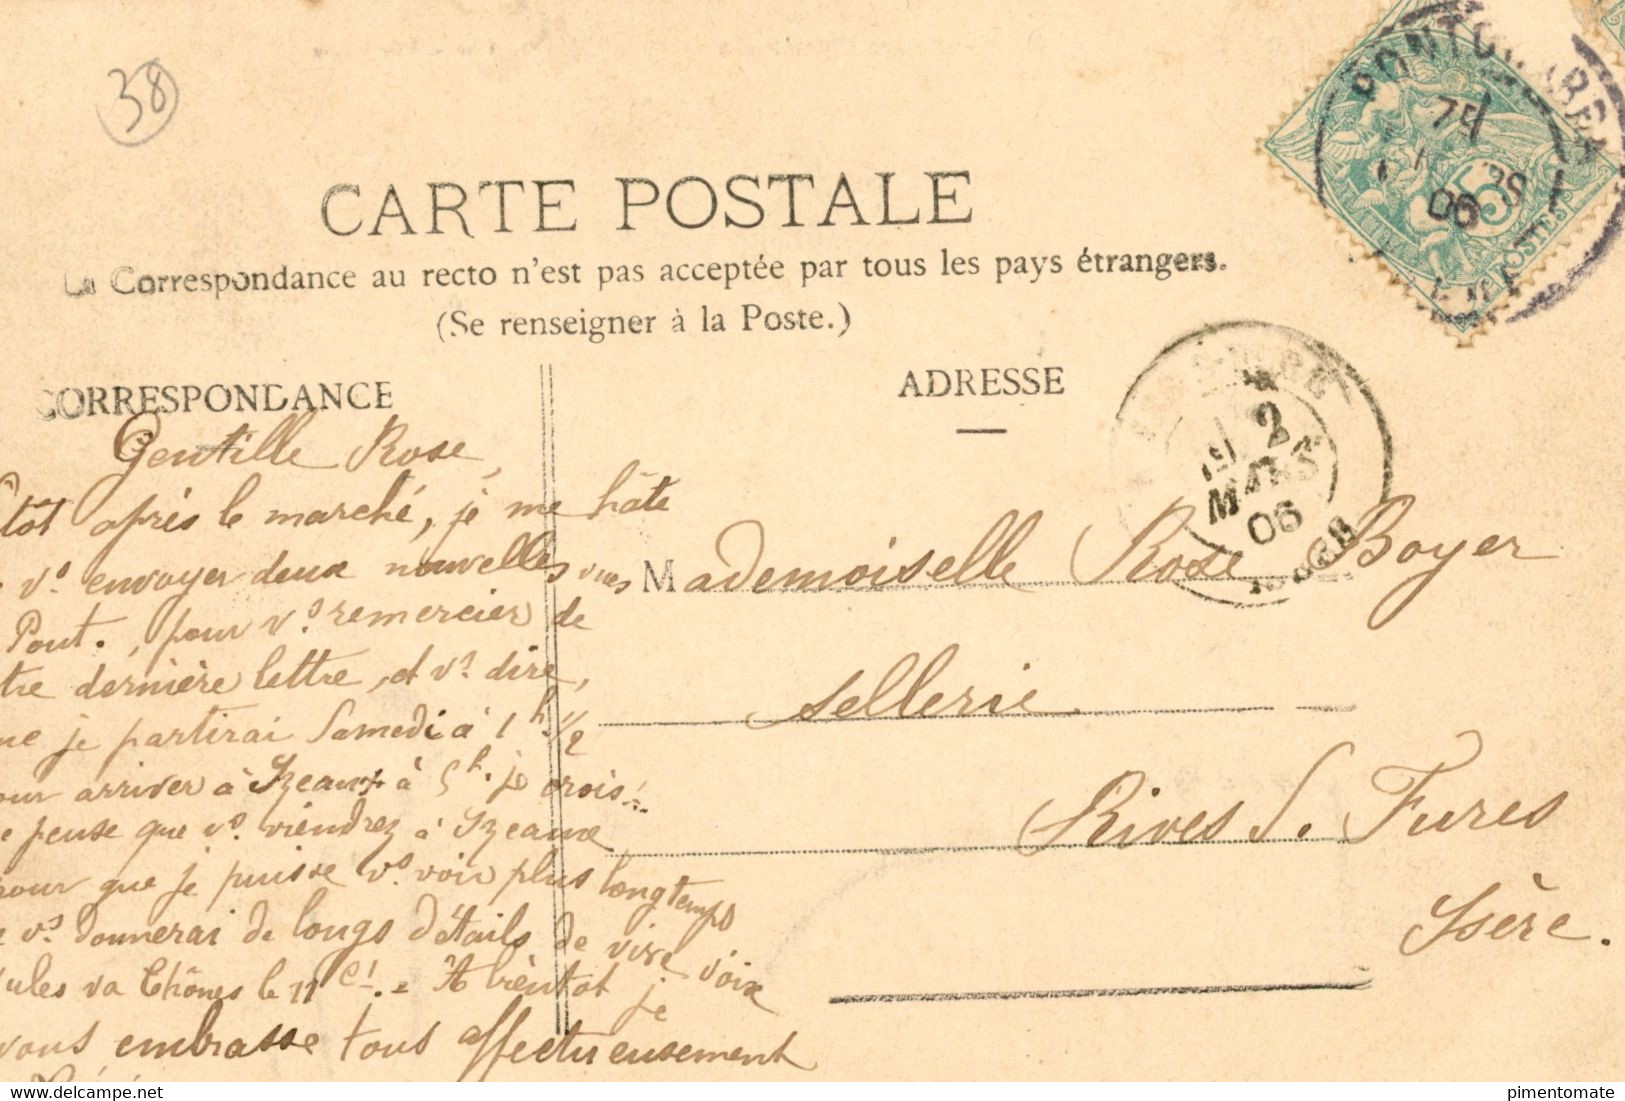 38
CARTE POSTALE
La Correspondance au recto n'est pas acceptée par tous les pays étrangers.
(Se renseigner à la Poste.)
CORRESPONDANCE
Gentille Rose,
tôt après le marché, je me hâte
vs envoyer deux nouvelles vues
Pont., pour vs remercier de
tre dernière lettre, et vs dire,
ue je partirai Samedi à 1 h. 1/2
our arriver à Izeaux à 5 h. je crois!..
e pense que vs viendrez à Izeaux
pour que je puisse vs voir plus longtemps
vs donnerai de longs détails de vive voix
ules va Thônes le 11 ct. = A bientôt je
vous embrasse tous affectueusement
ADRESSE
Mademoiselle Rose Boyer
sellerie
Rives S. Fures
Isère.
PONTCHARRA
75
MARS
06
5
POSTES
2
MARS
06
ISERE
pimentomate